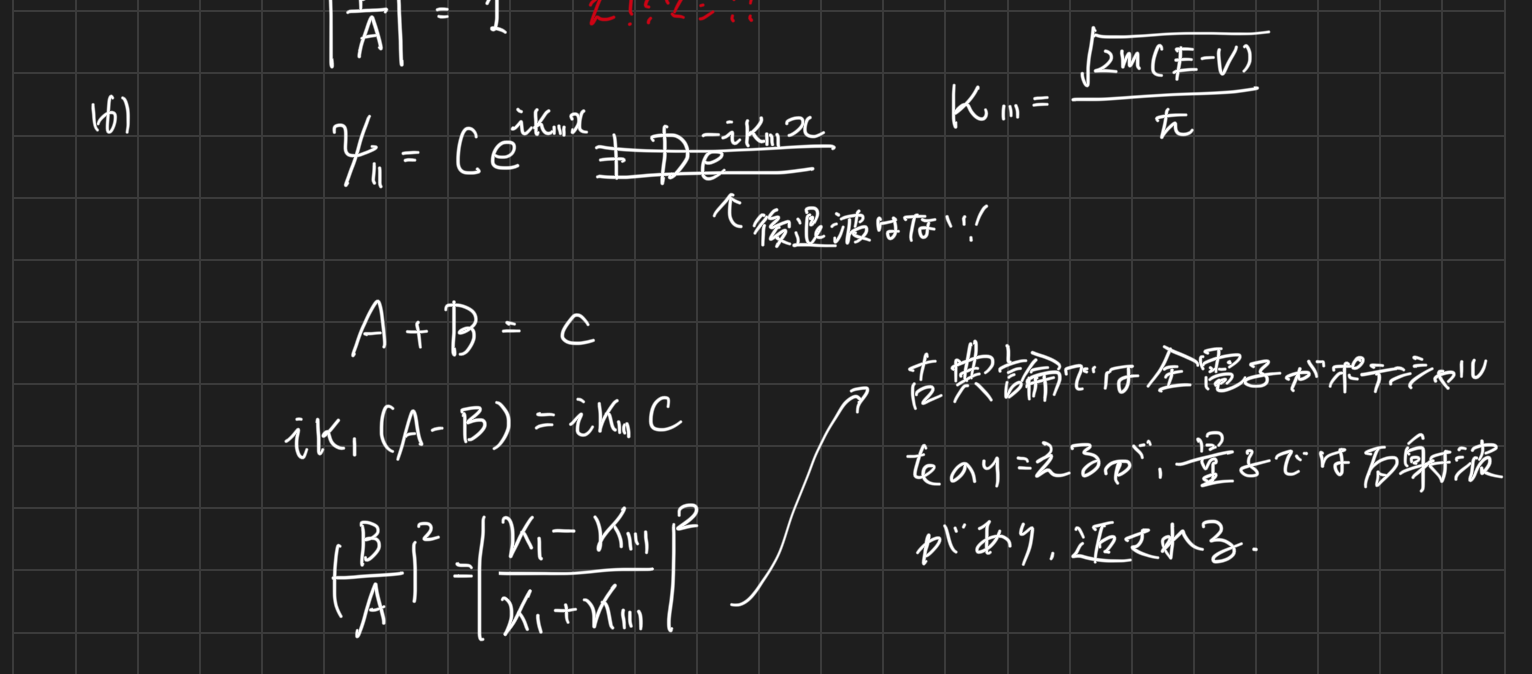 |B/A| = 1
(b)
ψ_II = Ce^{iK_III x} + De^{-iK_III x}
K_III = √(2m(E-V))/ℏ
↑後退波はない!
A + B = C
iK_I (A - B) = iK_III C
|B/A|² = |(K_I - K_III)/(K_I + K_III)|²
古典論では全電子がポテンシャル
をのりこえるが、量子では反射波
があり、返される.